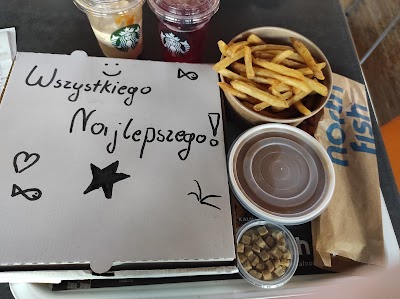 Wszystkiego
Najlepszego!
north
fish